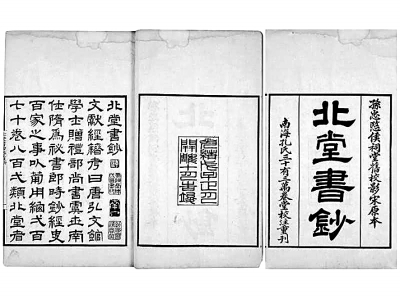 孫忠愍侯祠堂舊校影宋原本
北堂書鈔
南海孔氏三十有三萬卷堂校注重刊
光緒戊子
開雕十月
北堂書鈔
文獻經籍考曰唐弘文館
學士贈禮部尚書虞世南
仕隋為祕書郎時鈔經史
百家之事以葡用緫弌百
七十卷八百弌類北堂者